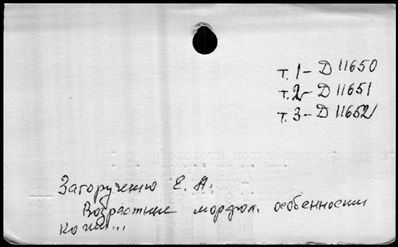 т. 1 – Д 11650
т. 2 – Д 11651
т. 3 – Д 11652
Загорученко Е. А.
Возрастные морфол. особенности
кожи...